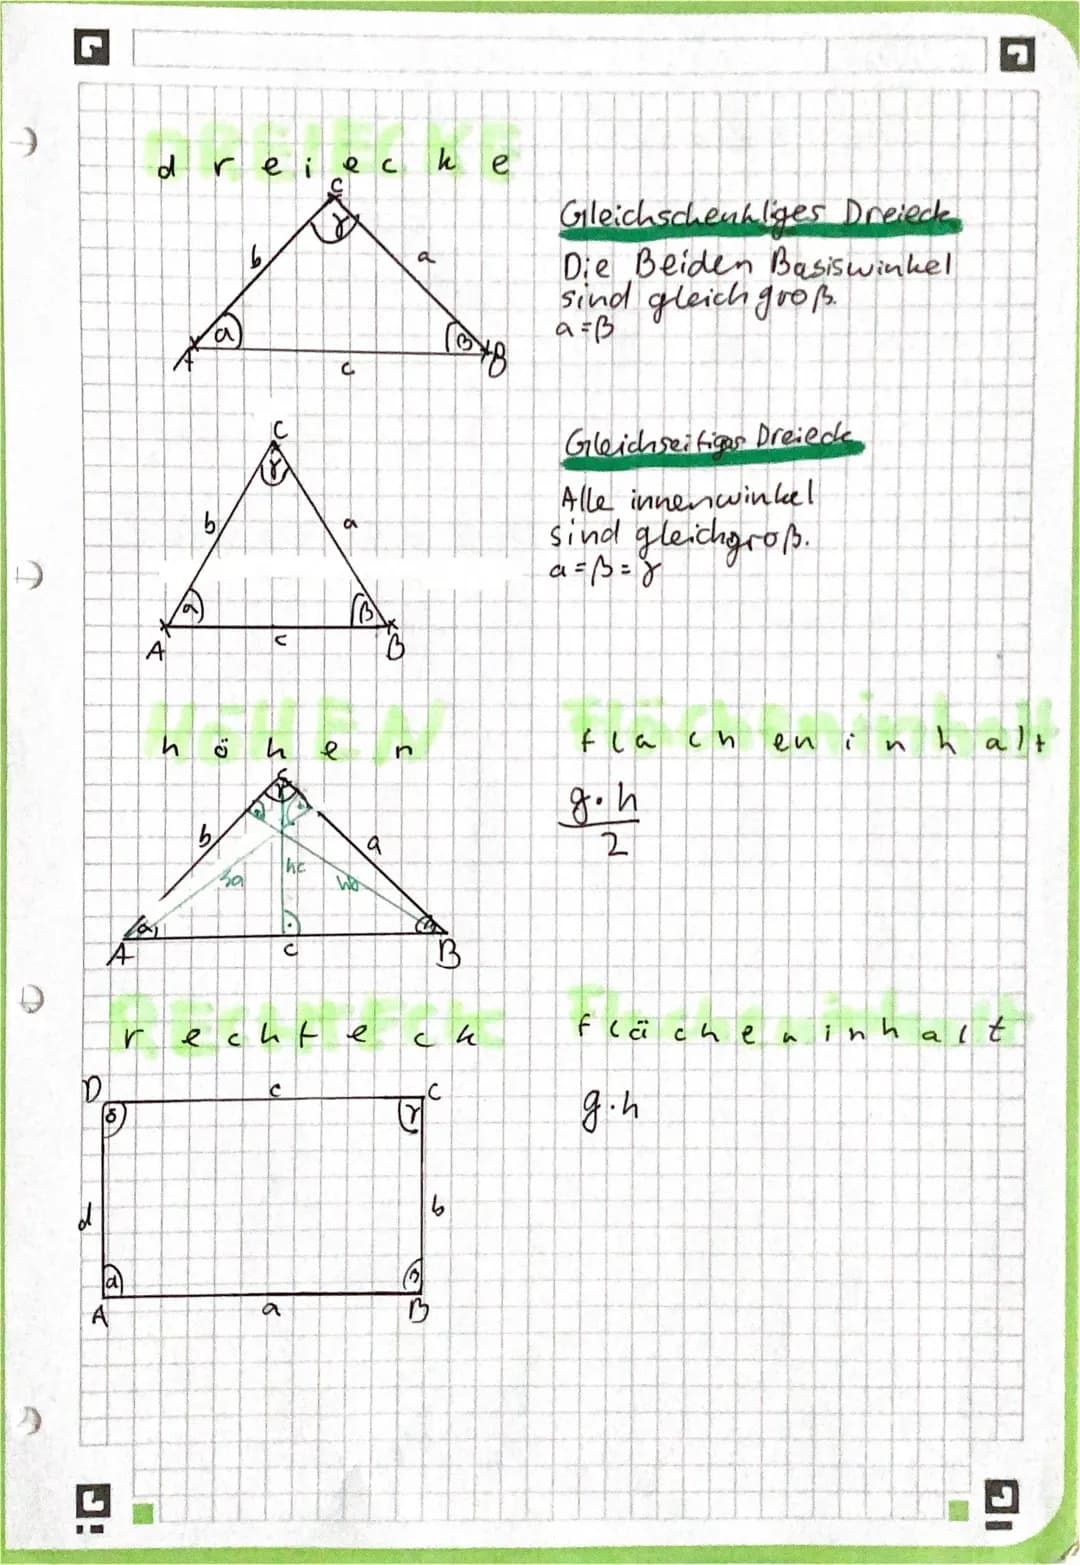 DREIECKE
dreiecke
C
γ
b
a
α
β
A
c
B
Gleichschenkliges Dreieck
Die Beiden Basiswinkel
sind gleich groß.
α=β
C
γ
b
a
α
β
A
c
B
Gleichseitiges Dreieck
Alle innenwinkel
sind gleichgroß.
α=β=γ
HÖHEN
höhen
C
γ
b
a
hc
α
A
c
B
Flächeninhalt
flächeninhalt
g·h
2
RECHTECK
rechteck
D
c
C
δ
γ
d
b
α
β
A
a
B
Flächeninhalt
flächeninhalt
g·h